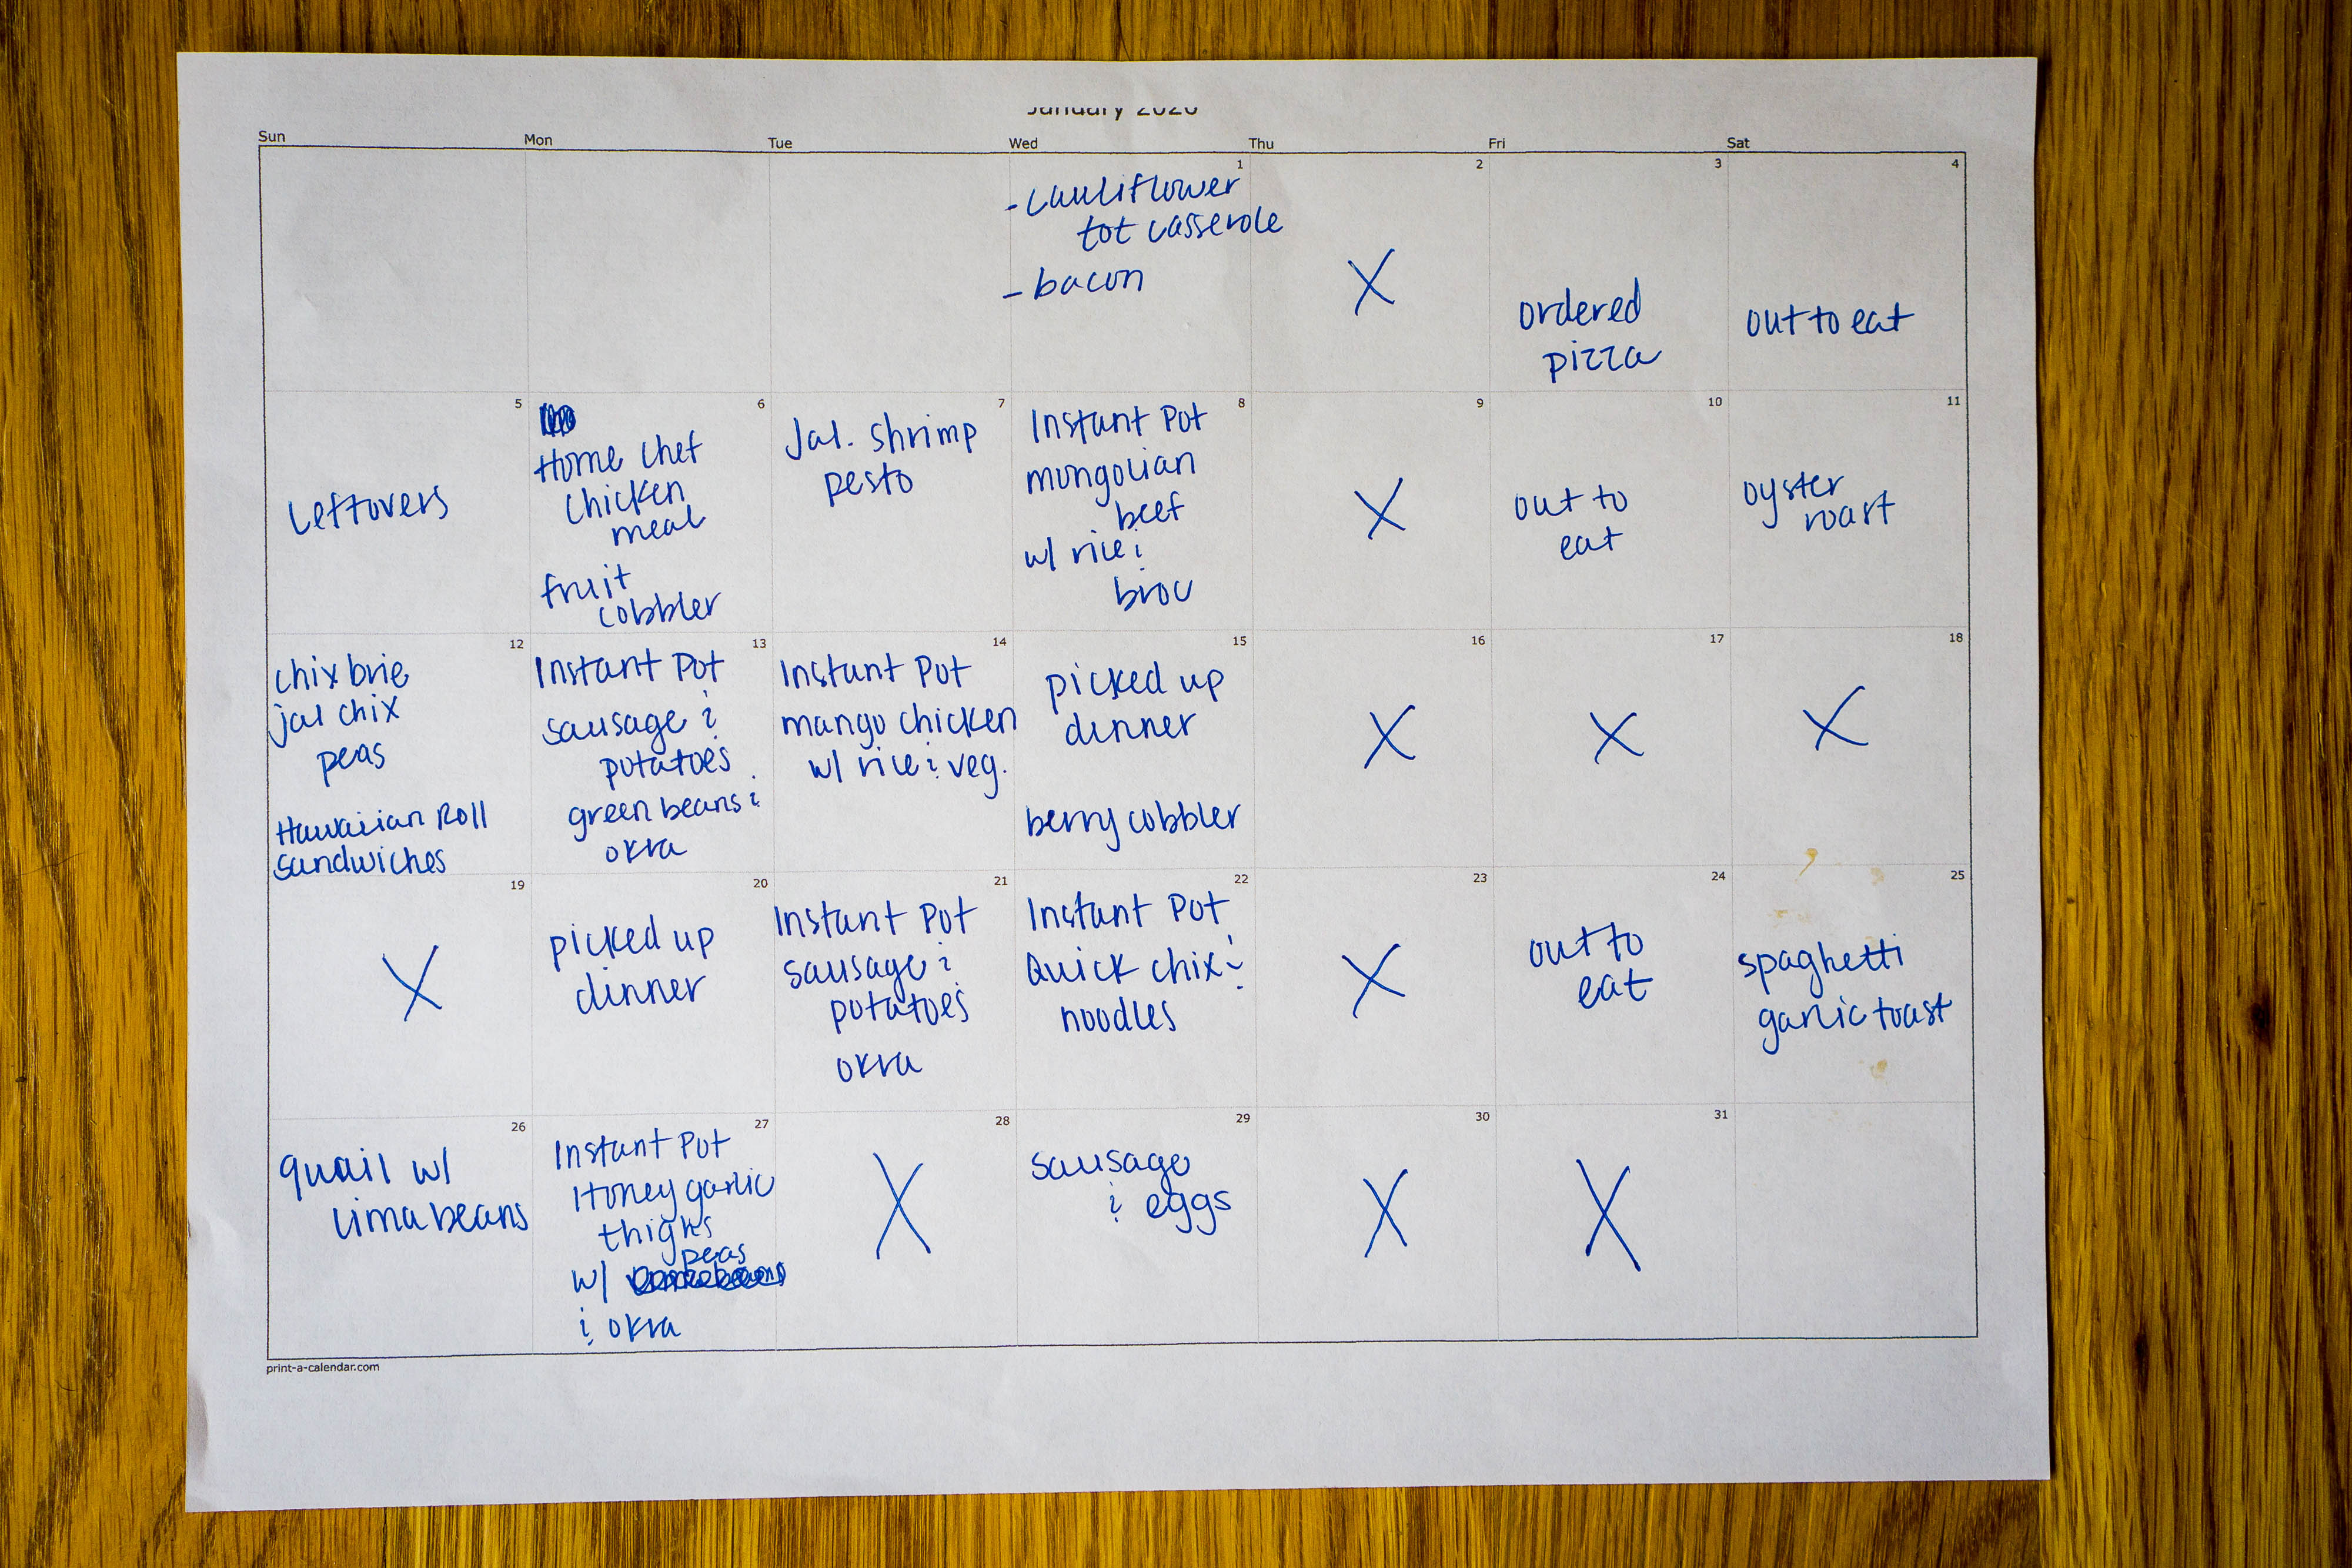 January 2020
Sun Mon Tue Wed Thu Fri Sat
1 2 3 4
- cauliflower
tot casserole
- bacon
X
ordered
pizza
out to eat
5 6 7 8 9 10 11
Leftovers
Home Chef
Chicken
meal
fruit
cobbler
Jal. shrimp
pesto
Instant Pot
mongolian
beef
w/ rice &
broc
X
out to
eat
oyster
roast
12 13 14 15 16 17 18
chix brie
jal chix
peas
Hawaiian Roll
sandwiches
Instant Pot
sausage &
potatoes
green beans &
okra
Instant Pot
mango chicken
w/ rice & veg.
picked up
dinner
berry cobbler
X
X
X
19 20 21 22 23 24 25
X
picked up
dinner
Instant Pot
sausage &
potatoes
okra
Instant Pot
Quick chix &
noodles
X
out to
eat
spaghetti
garlic toast
26 27 28 29 30 31
quail w/
lima beans
Instant Pot
Honey garlic
thighs
peas
w/
& okra
X
sausage
& eggs
X
X
print-a-calendar.com